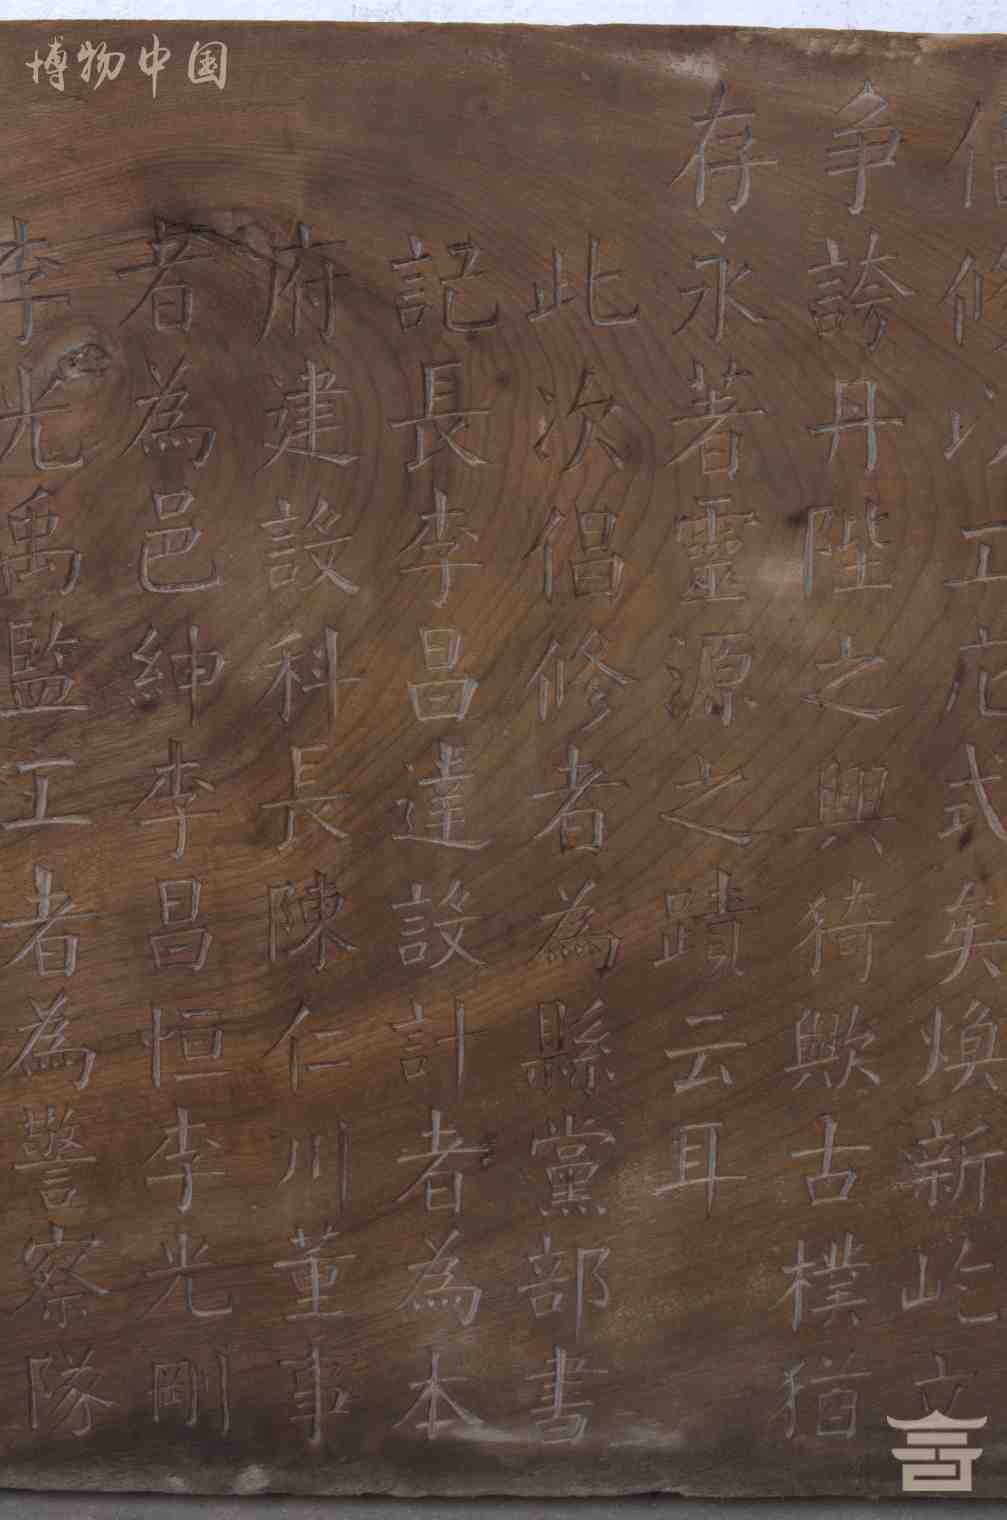 博物中国
修以工庀式矣煥新屹立
争誇丹陛之興猗歟古樸猶
存永著靈源之蹟云耳
此次倡修者為縣黨部書
記長李昌達設計者為本
府建設科長陳仁川董事
者為邑紳李昌恒李光剛
李光禹監工者為警察隊